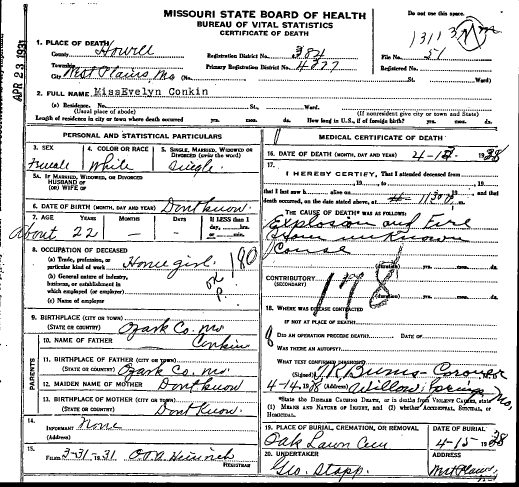 MISSOURI STATE BOARD OF HEALTH
BUREAU OF VITAL STATISTICS
CERTIFICATE OF DEATH
Do not use this space.
APR 23 1931
1. PLACE OF DEATH
County Howell
Registration District No. 384
File No. 51
Township
Primary Registration District No. 4827
Registered No.
City West Plains, Mo (No. St. Ward)
2. FULL NAME MissEvelyn Conkin
(a) Residence. No. St., Ward.
(Usual place of abode) (If nonresident give city or town and State)
Length of residence in city or town where death occurred yrs. mos. ds. How long in U.S., if of foreign birth? yrs. mos. ds.
PERSONAL AND STATISTICAL PARTICULARS
3. SEX
Female
4. COLOR OR RACE
White
5. SINGLE, MARRIED, WIDOWED OR DIVORCED (write the word)
Single
5A. IF MARRIED, WIDOWED, OR DIVORCED
HUSBAND OF
(OR) WIFE OF
6. DATE OF BIRTH (MONTH, DAY AND YEAR) Dont know
7. AGE YEARS MONTHS DAYS If LESS than 1 day, hrs. or min.
About 22 - -
8. OCCUPATION OF DECEASED
(a) Trade, profession, or particular kind of work Home girl
(b) General nature of industry, business, or establishment in which employed (or employer)
(c) Name of employer
9. BIRTHPLACE (CITY OR TOWN)
(STATE OR COUNTRY) Ozark Co. Mo
10. NAME OF FATHER Conkin
PARENTS
11. BIRTHPLACE OF FATHER (CITY OR TOWN)
(STATE OR COUNTRY) Ozark Co. Mo.
12. MAIDEN NAME OF MOTHER Dont know
13. BIRTHPLACE OF MOTHER (CITY OR TOWN)
(STATE OR COUNTRY) Dont know.
14.
INFORMANT None
(Address)
15.
FILED 3-31-31
REGISTRAR
MEDICAL CERTIFICATE OF DEATH
16. DATE OF DEATH (MONTH, DAY AND YEAR) 4-13
17.
I HEREBY CERTIFY, That I attended deceased from
, 19 , to , 19
that I last saw h alive on , 19 , and that
death occurred, on the date stated above, at
THE CAUSE OF DEATH* WAS AS FOLLOWS:
Explosion and Fire
from unknown
Cause
(duration) yrs. mos. ds.
178
CONTRIBUTORY
(SECONDARY)
(duration) yrs. mos. ds.
18. WHERE WAS DISEASE CONTRACTED
IF NOT AT PLACE OF DEATH
DID AN OPERATION PRECEDE DEATH? DATE OF
WAS THERE AN AUTOPSY?
WHAT TEST CONFIRMED DIAGNOSIS?
(Signed) Burns - Coroner
4-14, 1928 (Address) Willow Springs Mo,
*State the DISEASE CAUSING DEATH, or in deaths from VIOLENT CAUSES, state (1) MEANS AND NATURE OF INJURY, and (2) whether ACCIDENTAL, SUICIDAL, or HOMICIDAL.
19. PLACE OF BURIAL, CREMATION, OR REMOVAL
Oak Lawn Cem
DATE OF BURIAL
4-15 1928
20. UNDERTAKER
Geo. Stapp.
ADDRESS
West Plains